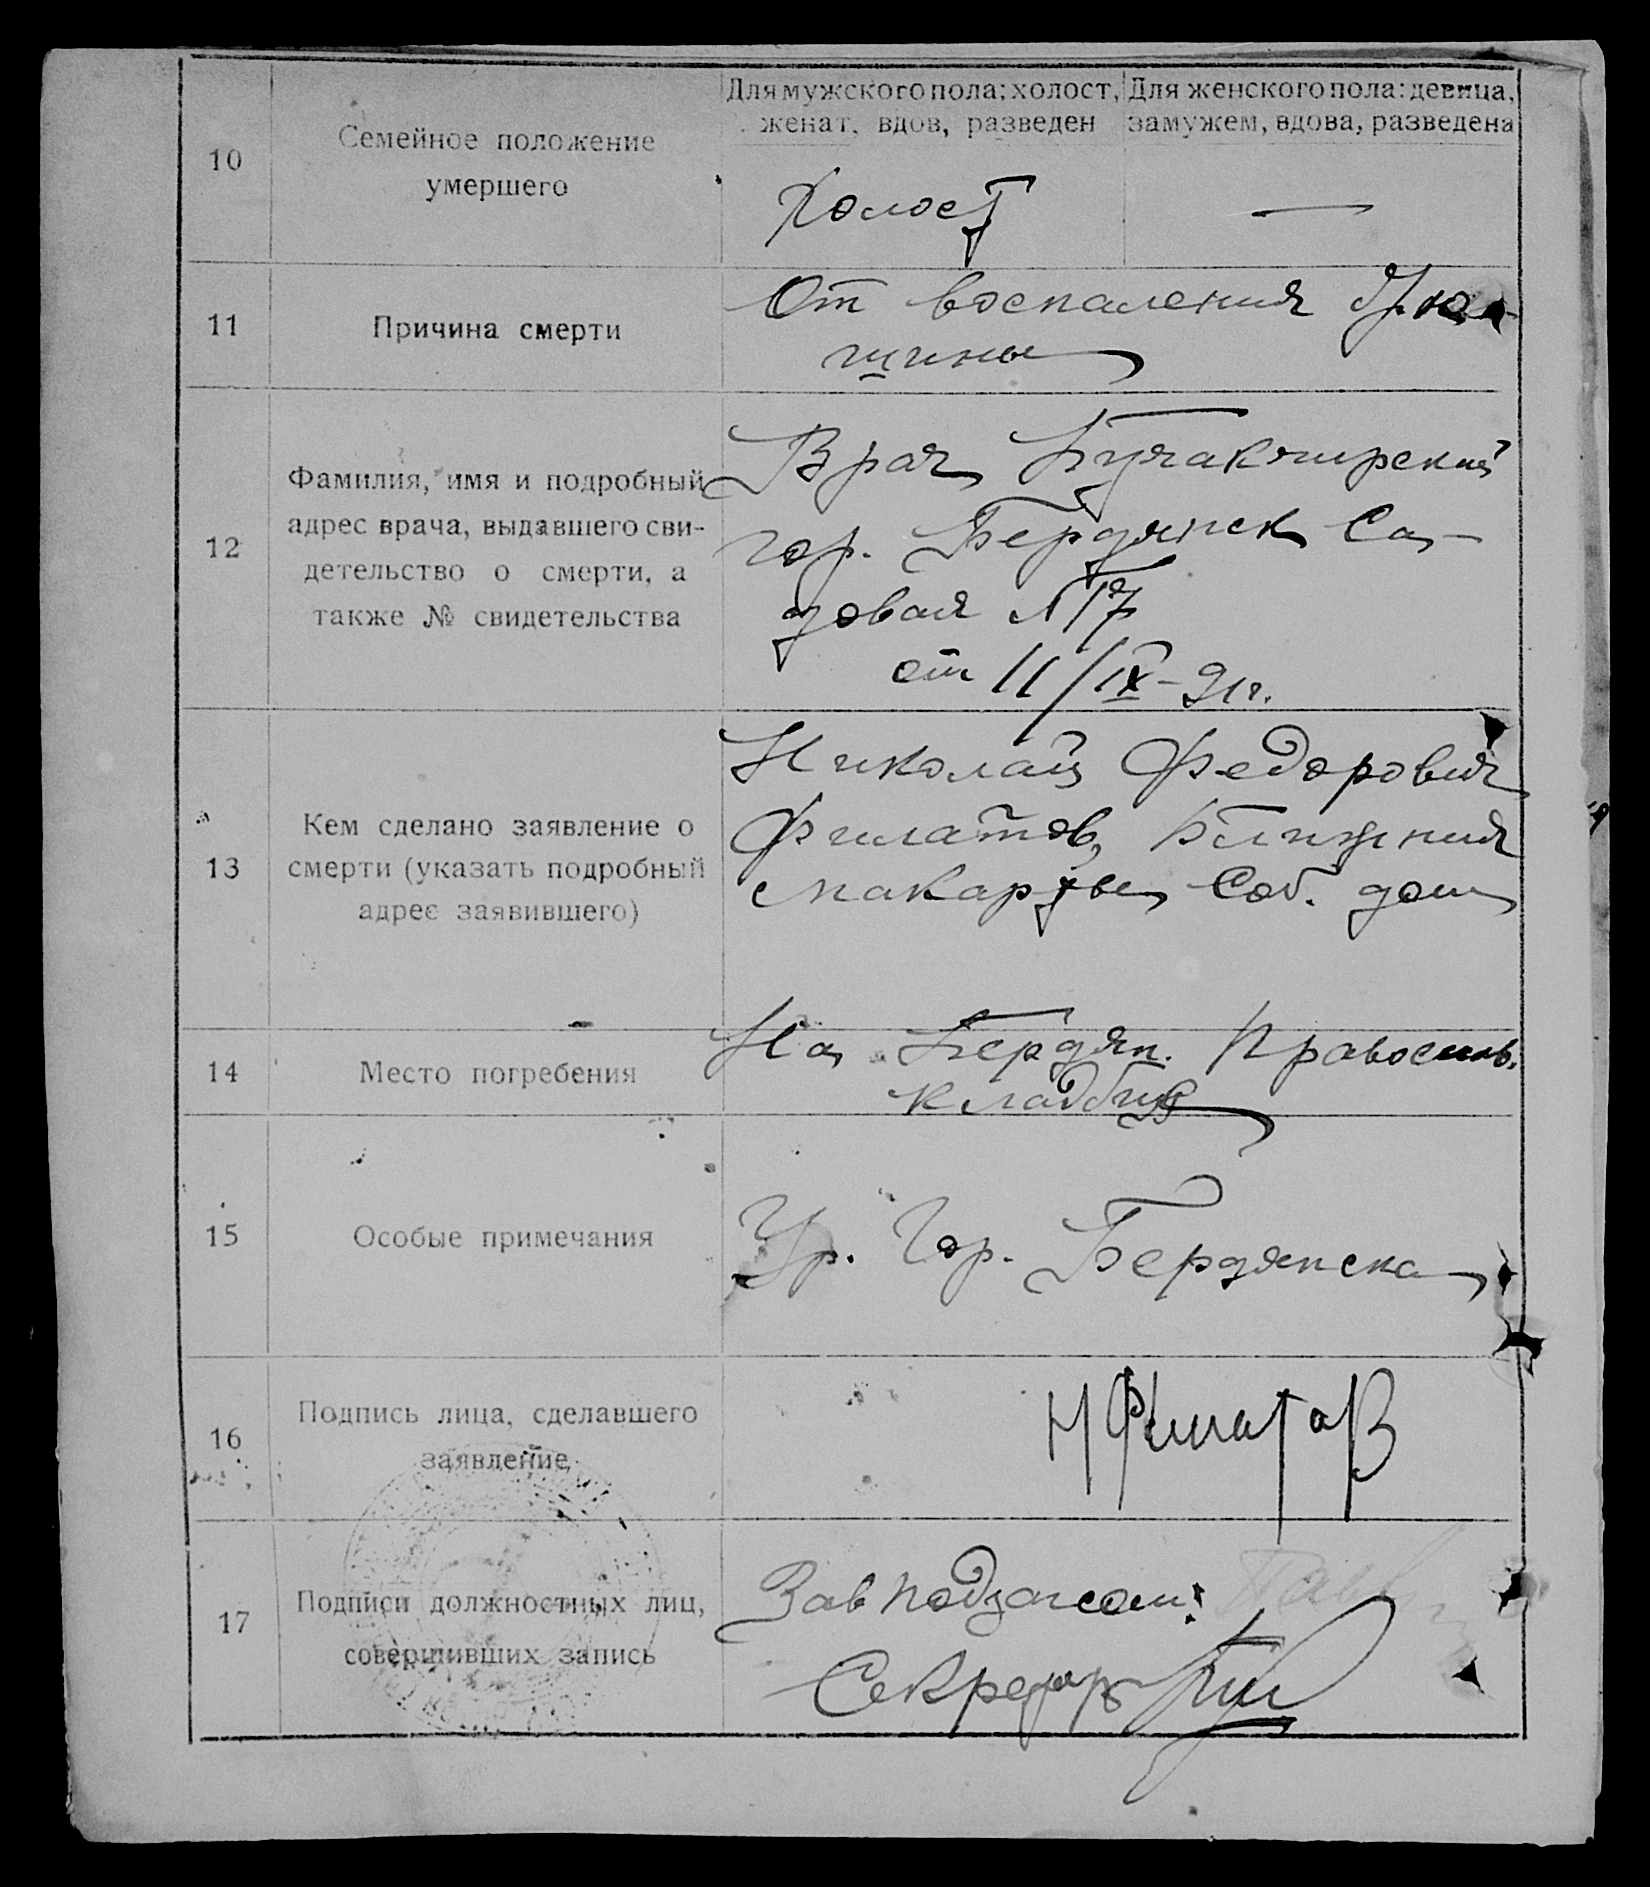 Для мужского пола: холост,
женат, вдов, разведен
Для женского пола: девица,
замужем, вдова, разведена
10
Семейное положение
умершего
Холост
—
11
Причина смерти
От воспаления брю-
шины
12
Фамилия, имя и подробный
адрес врача, выдавшего сви-
детельство о смерти, а
также № свидетельства
Врач
гор. Бердянск Са-
довая №
от 11/IX-21г.
13
Кем сделано заявление о
смерти (указать подробный
адрес заявившего)
Николай Федорович
Филатов, Ближния
Макорты Соб. дом
14
Место погребения
На Бердян. Православ.
кладбище
15
Особые примечания
Ур. Гор. Бердянска
16
Подпись лица, сделавшего
заявление
НФилатов
17
Подписи должностных лиц,
совершивших запись
Завподзагсом:
Секретарь